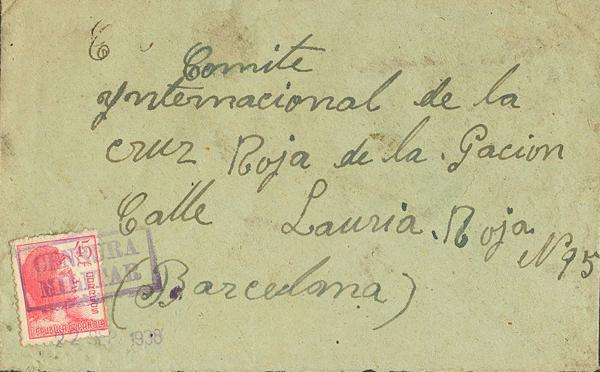 C
Comite
Ynternacional de la
cruz Roja de la. Gacion
Calle Lauria. Roja
Nº 95
(Barcelona)
45
CENTIMOS
REPUBLICA ESPAÑOLA
CENSURA
MILITAR
22 1938